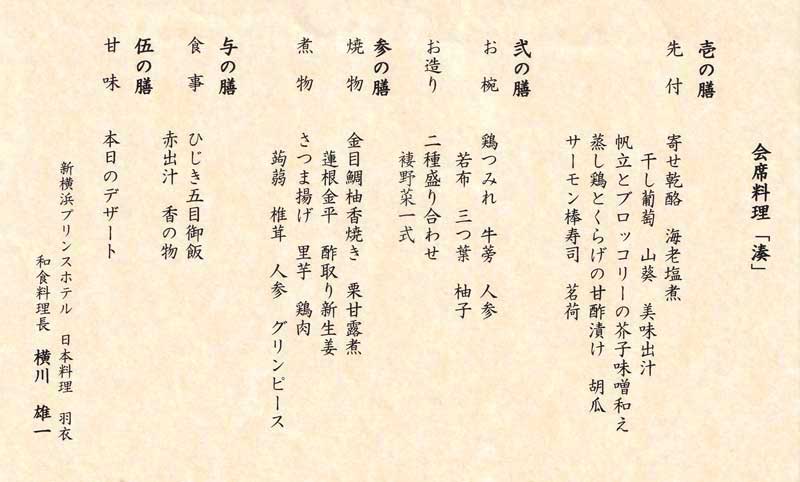 会席料理「湊」
壱の膳
先付
寄せ乾酪 海老塩煮
干し葡萄 山葵 美味出汁
帆立とブロッコリーの芥子味噌和え
蒸し鶏とくらげの甘酢漬け 胡瓜
サーモン棒寿司 茗荷
弐の膳
お椀
鶏つみれ 牛蒡 人参
若布 三つ葉 柚子
お造り
二種盛り合わせ
褄野菜一式
参の膳
焼物
金目鯛柚香焼き 栗甘露煮
蓮根金平 酢取り新生姜
煮物
さつま揚げ 里芋 鶏肉
蒟蒻 椎茸 人参 グリンピース
与の膳
食事
ひじき五目御飯
赤出汁 香の物
伍の膳
甘味
本日のデザート
新横浜プリンスホテル 日本料理 羽衣
和食料理長 横川 雄一